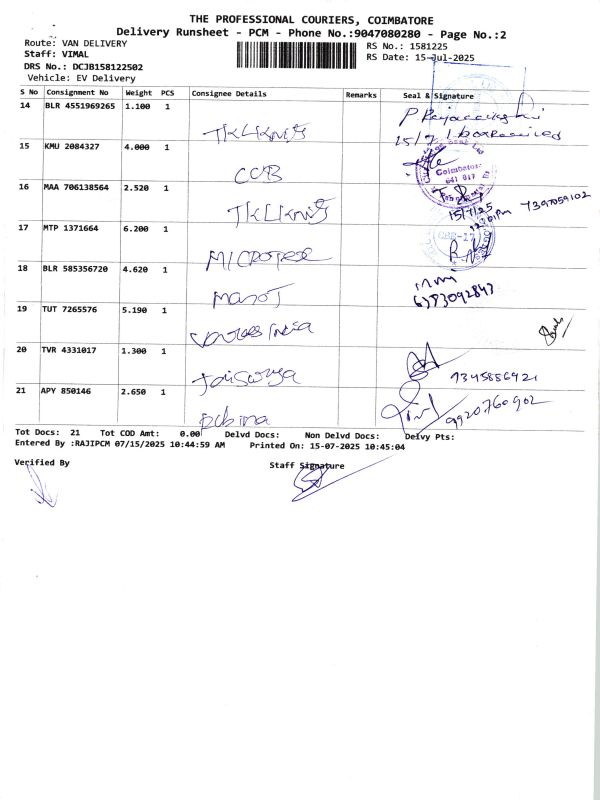 THE PROFESSIONAL COURIERS, COIMBATORE
Delivery Runsheet - PCM - Phone No.:9047080280 - Page No.:2
Route: VAN DELIVERY
Staff: VIMAL
DRS No.: DCJB158122502
Vehicle: EV Delivery
RS No.: 1581225
RS Date: 15-Jul-2025
S No Consignment No Weight PCS Consignee Details Remarks Seal & Signature
14 BLR 4551969265 1.100 1
15/7 1 box Received
15 KMU 2084327 4.000 1 CCB
Coimbatore
641 017
16 MAA 706138564 2.520 1
15/7/25
7397059102
17 MTP 1371664 6.200 1
18 BLR 585356720 4.620 1
6383092843
19 TUT 7265576 5.190 1 India
20 TVR 4331017 1.300 1 Jaisurya
9345856421
21 APY 850146 2.650 1 Rubina
9920760902
Tot Docs: 21 Tot COD Amt: 0.00 Delvd Docs: Non Delvd Docs: Delvy Pts:
Entered By :RAJIPCM 07/15/2025 10:44:59 AM Printed On: 15-07-2025 10:45:04
Verified By Staff Signature